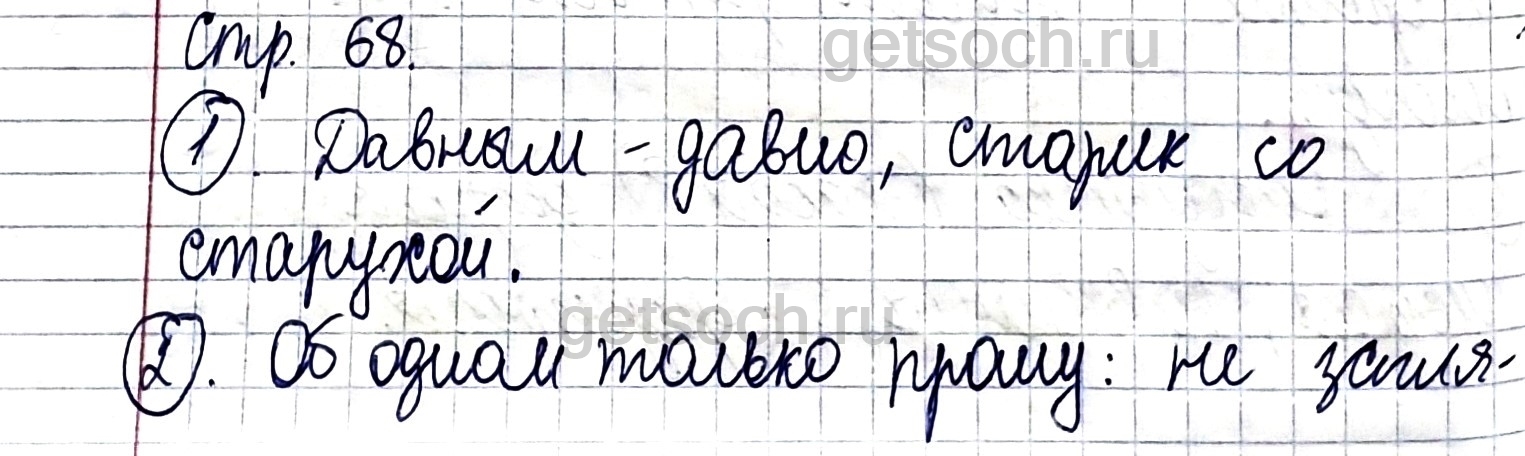 Стр. 68.
getsoch.ru
1. Давным-давно, старик со
старухой.
getsoch.ru
2. Об одном только прошу: не загля-